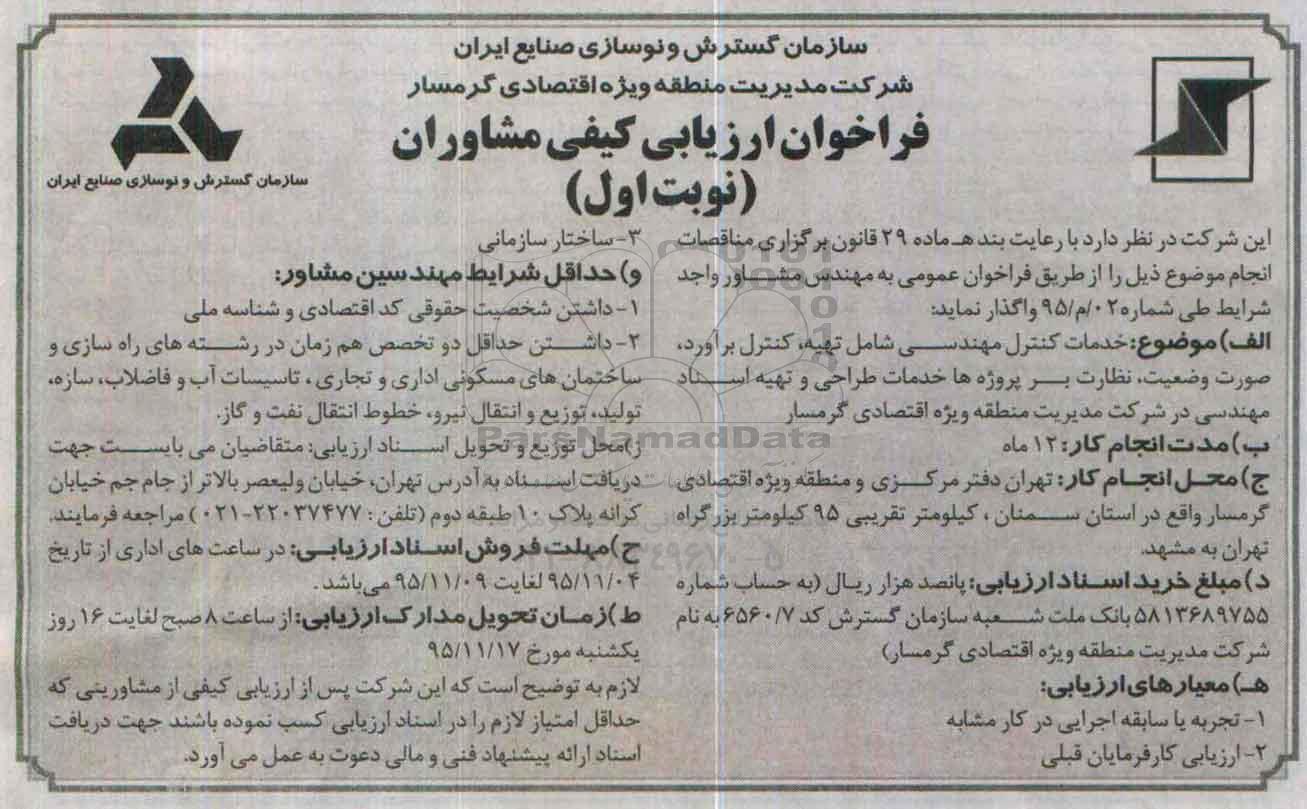 سازمان گسترش و نوسازی صنایع ایران
شرکت مدیریت منطقه ویژه اقتصادی گرمسار
فراخوان ارزیابی کیفی مشاوران
(نوبت اول)
سازمان گسترش و نوسازی صنایع ایران
این شرکت در نظر دارد با رعایت بند هـ ماده ۲۹ قانون برگزاری مناقصات
انجام موضوع ذیل را از طریق فراخوان عمومی به مهندس مشاور واجد
شرایط طی شماره ۰۲/م/۹۵ واگذار نماید:
الف) موضوع: خدمات کنترل مهندسی شامل تهیه، کنترل برآورد،
صورت وضعیت، نظارت بر پروژه ها خدمات طراحی و تهیه اسناد
مهندسی در شرکت مدیریت منطقه ویژه اقتصادی گرمسار
ب) مدت انجام کار: ۱۲ ماه
ج) محل انجام کار: تهران دفتر مرکزی و منطقه ویژه اقتصادی
گرمسار واقع در استان سمنان ، کیلومتر تقریبی ۹۵ کیلومتر بزرگراه
تهران به مشهد.
د) مبلغ خرید اسناد ارزیابی: پانصد هزار ریال (به حساب شماره
۵۸۱۳۶۸۹۷۵۵ بانک ملت شعبه سازمان گسترش کد ۶۵۶۰/۷ به نام
شرکت مدیریت منطقه ویژه اقتصادی گرمسار)
هـ) معیارهای ارزیابی:
۱- تجربه یا سابقه اجرایی در کار مشابه
۲- ارزیابی کارفرمایان قبلی
۳- ساختار سازمانی
و) حداقل شرایط مهندسین مشاور:
۱- داشتن شخصیت حقوقی کد اقتصادی و شناسه ملی
۲- داشتن حداقل دو تخصص هم زمان در رشته های راه سازی و
ساختمان های مسکونی اداری و تجاری ، تاسیسات آب و فاضلاب، سازه،
تولید، توزیع و انتقال نیرو، خطوط انتقال نفت و گاز.
ز)محل توزیع و تحویل اسناد ارزیابی: متقاضیان می بایست جهت
دریافت اسناد به آدرس تهران، خیابان ولیعصر بالاتر از جام جم خیابان
کرانه پلاک ۱۰ طبقه دوم (تلفن: ۲۲۰۳۷۴۷۷-۰۲۱) مراجعه فرمایند.
ح) مهلت فروش اسناد ارزیابی: در ساعت های اداری از تاریخ
۹۵/۱۱/۰۴ لغایت ۹۵/۱۱/۰۹ می‌باشد.
ط) زمان تحویل مدارک ارزیابی: از ساعت ۸ صبح لغایت ۱۶ روز
یکشنبه مورخ ۹۵/۱۱/۱۷
لازم به توضیح است که این شرکت پس از ارزیابی کیفی از مشاورینی که
حداقل امتیاز لازم را در اسناد ارزیابی کسب نموده باشند جهت دریافت
اسناد ارائه پیشنهاد فنی و مالی دعوت به عمل می آورد.
ParsNamadData